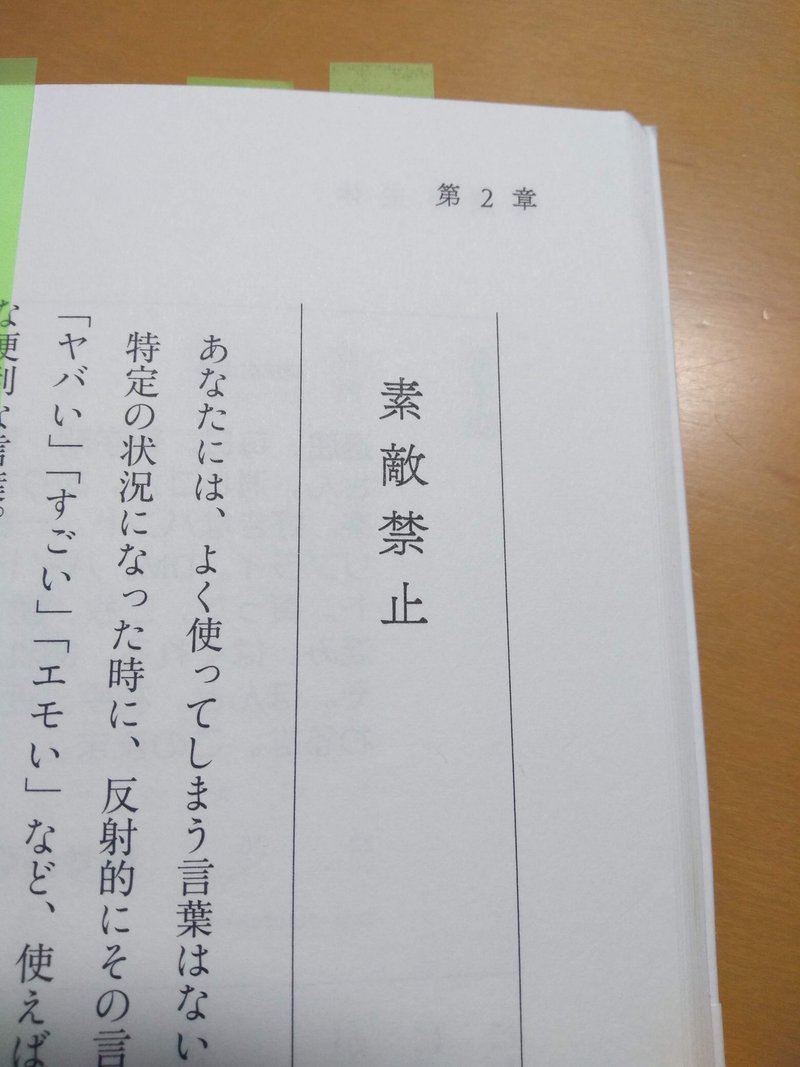 第2章
素敵禁止
あなたには、よく使ってしまう言葉はない
特定の状況になった時に、反射的にその言
「ヤバい」「すごい」「エモい」など、使えば
な便利な言葉。